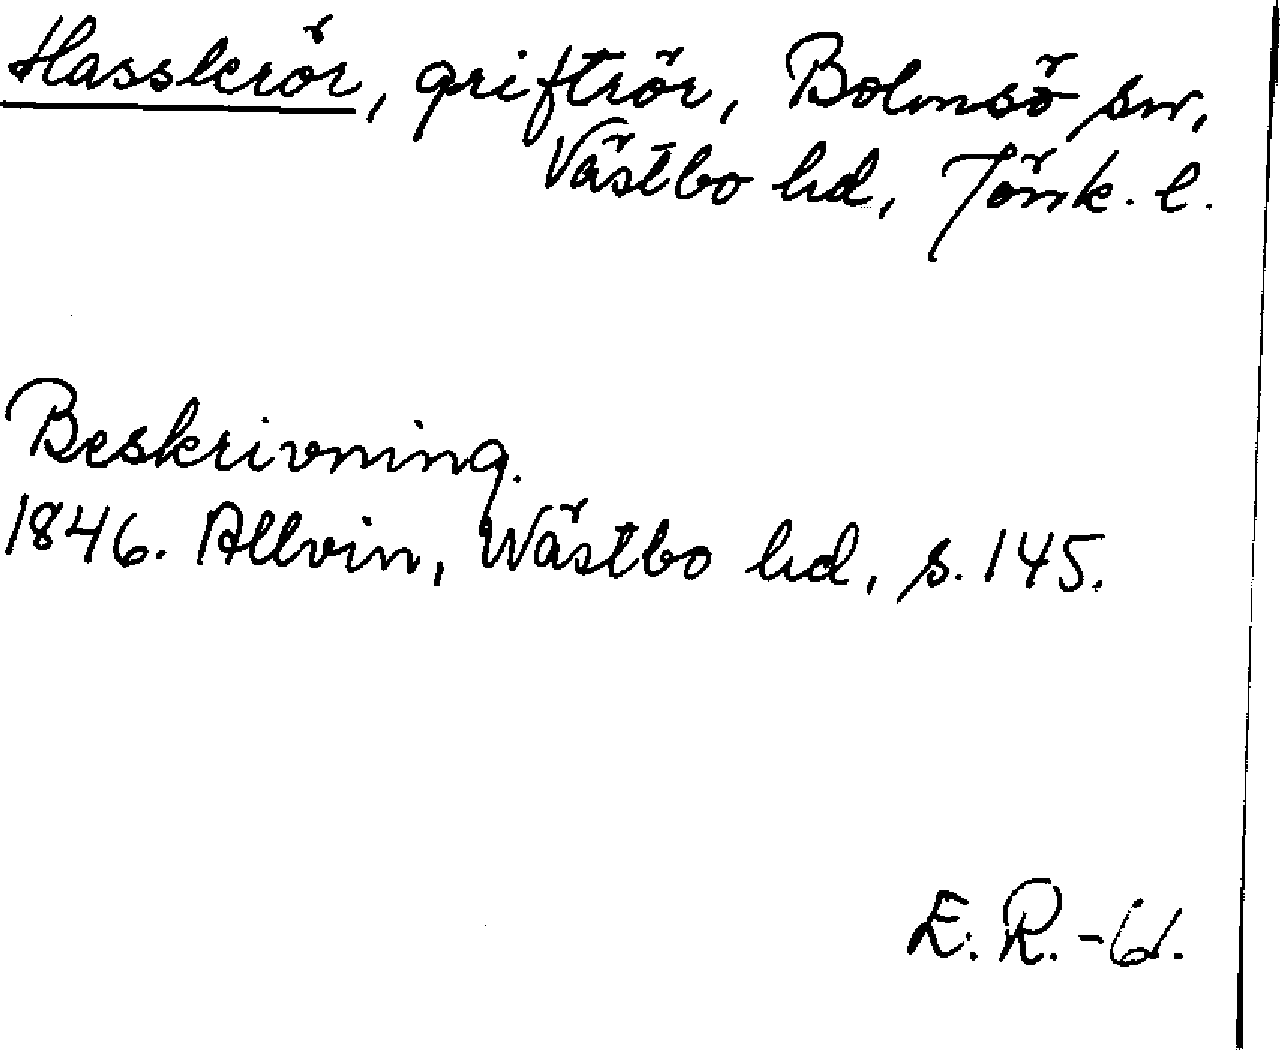 Hasslerör, griftrör, Bolmsö sn,
Västbo hd, Jönk. l.
Beskrivning.
1846. Allvin, Wästbo hd, s. 145.
E. R. -61.